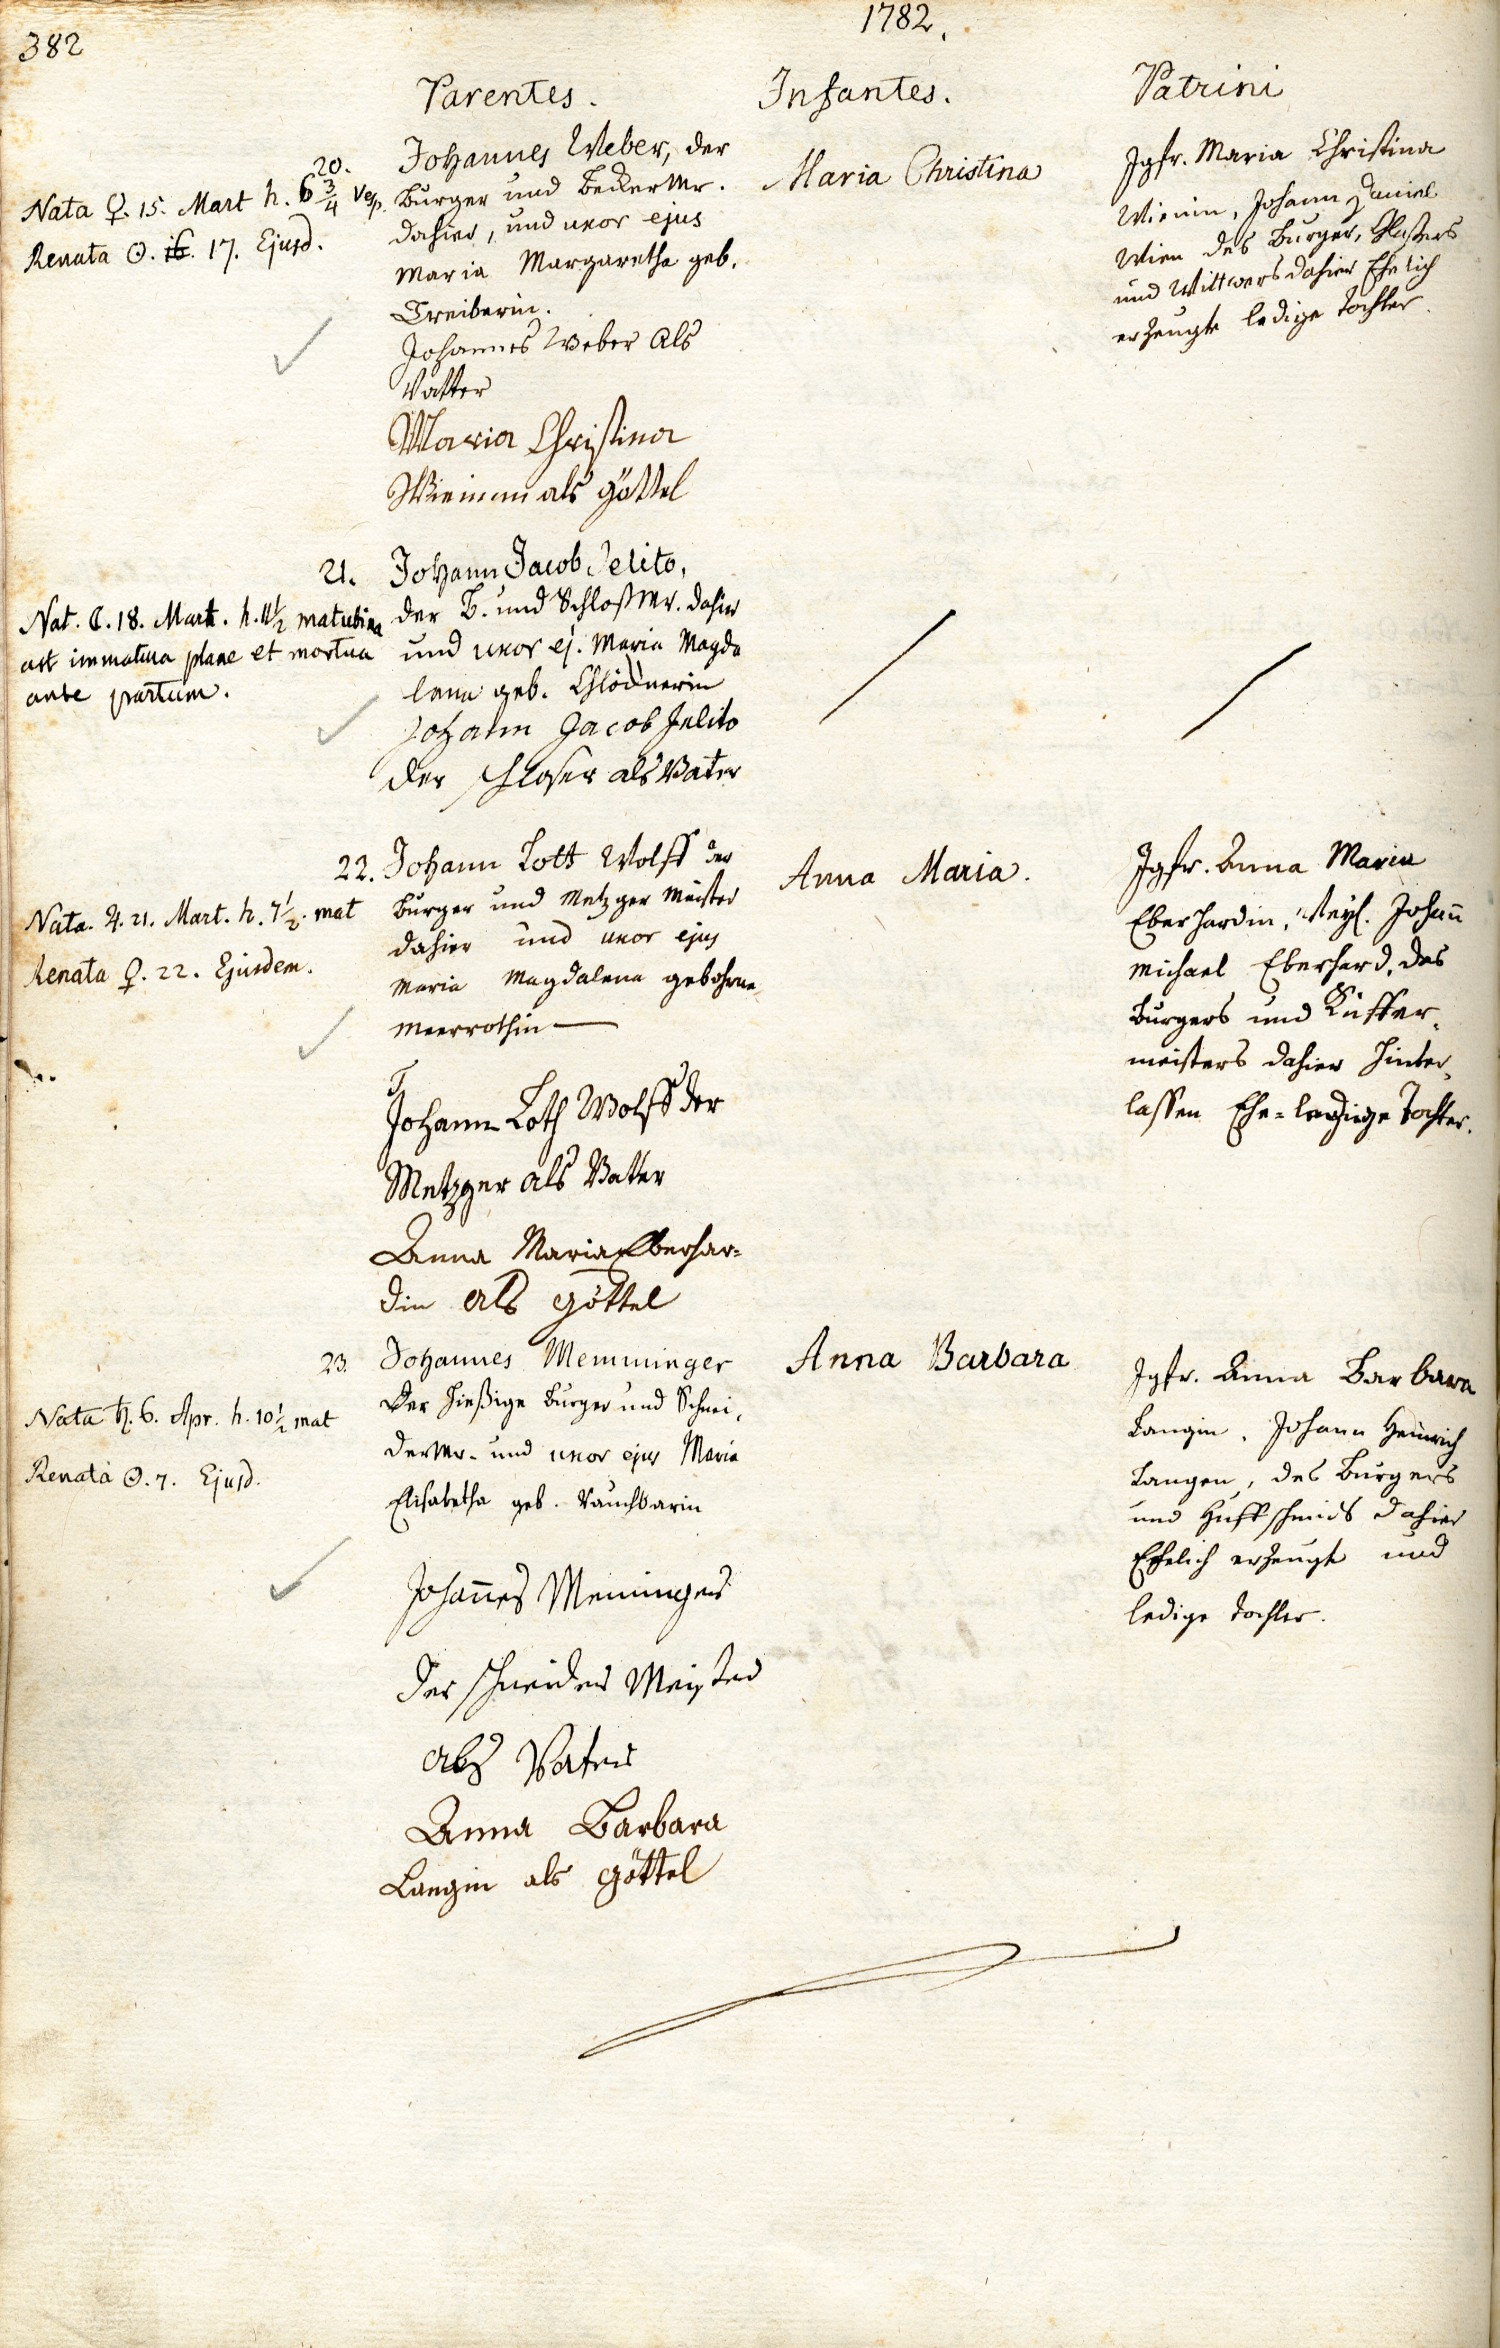 382
1782.
Parentes.
Infantes.
Patrini
20.
Nata ♀. 15. Mart h. 6 3/4 Vesp.
Renata ☉. 16. 17. Ejusd.
Johannes Weber, der
burger und beckermr.
dahier, und uxor ejus
Maria Margaretha geb.
Treiberin.
Johannes Weber als
Vatter
Maria Christina
Wienin als göttel
Maria Christina
Jgfr. Maria Christina
Wienin, Johann Daniel
Wien des burgers,
und Wittwers dahier Ehelich
erzeugte ledige tochter.
21.
Nat. ☾. 18. Mart. h. 11 1/2 matutina
ast immatura plane et mortua
ante partum.
Johann Jacob Jelito,
der B. und Schloßmr. dahier
und uxor ej. Maria Magda
lena geb.
Johann Jacob Jelito
der schloser als Vater
22.
Nata. ♃. 21. Mart. h. 7 1/2. mat
Renata ♀. 22. Ejusdem.
Johann Lott Wolff der
burger und Metzger meister
dahier und uxor ejus
Maria Magdalena gebohrne
Meerrothin
Johann Loth Wolff der
Metzger als Vatter
Anna Maria Eberhar=
din als göttel
Anna Maria.
Jgfr. Anna Maria
Eberhardin, Weyl. Johann
Michael Eberhard, des
burgers und Kieffer,
meisters dahier hinter,
lassen Ehe=ledige Tochter.
23.
Nata ♄. 6. Apr. h. 10 1/2 mat
Renata ☉. 7. Ejusd.
Johannes Memminger
der hießige burger und Schnei,
dermr. und uxor ejus Maria
Elisabetha geb. Rauchbarin
Johannes Meminger
der schneider Meister
als Vater
Anna Barbara
Langin als göttel
Anna Barbara
Jgfr. Anna Barbara
Langin, Johann Heinrich
Langen, des burgers
und Huffschmids dahier
Ehelich erzeugte und
ledige tochter.